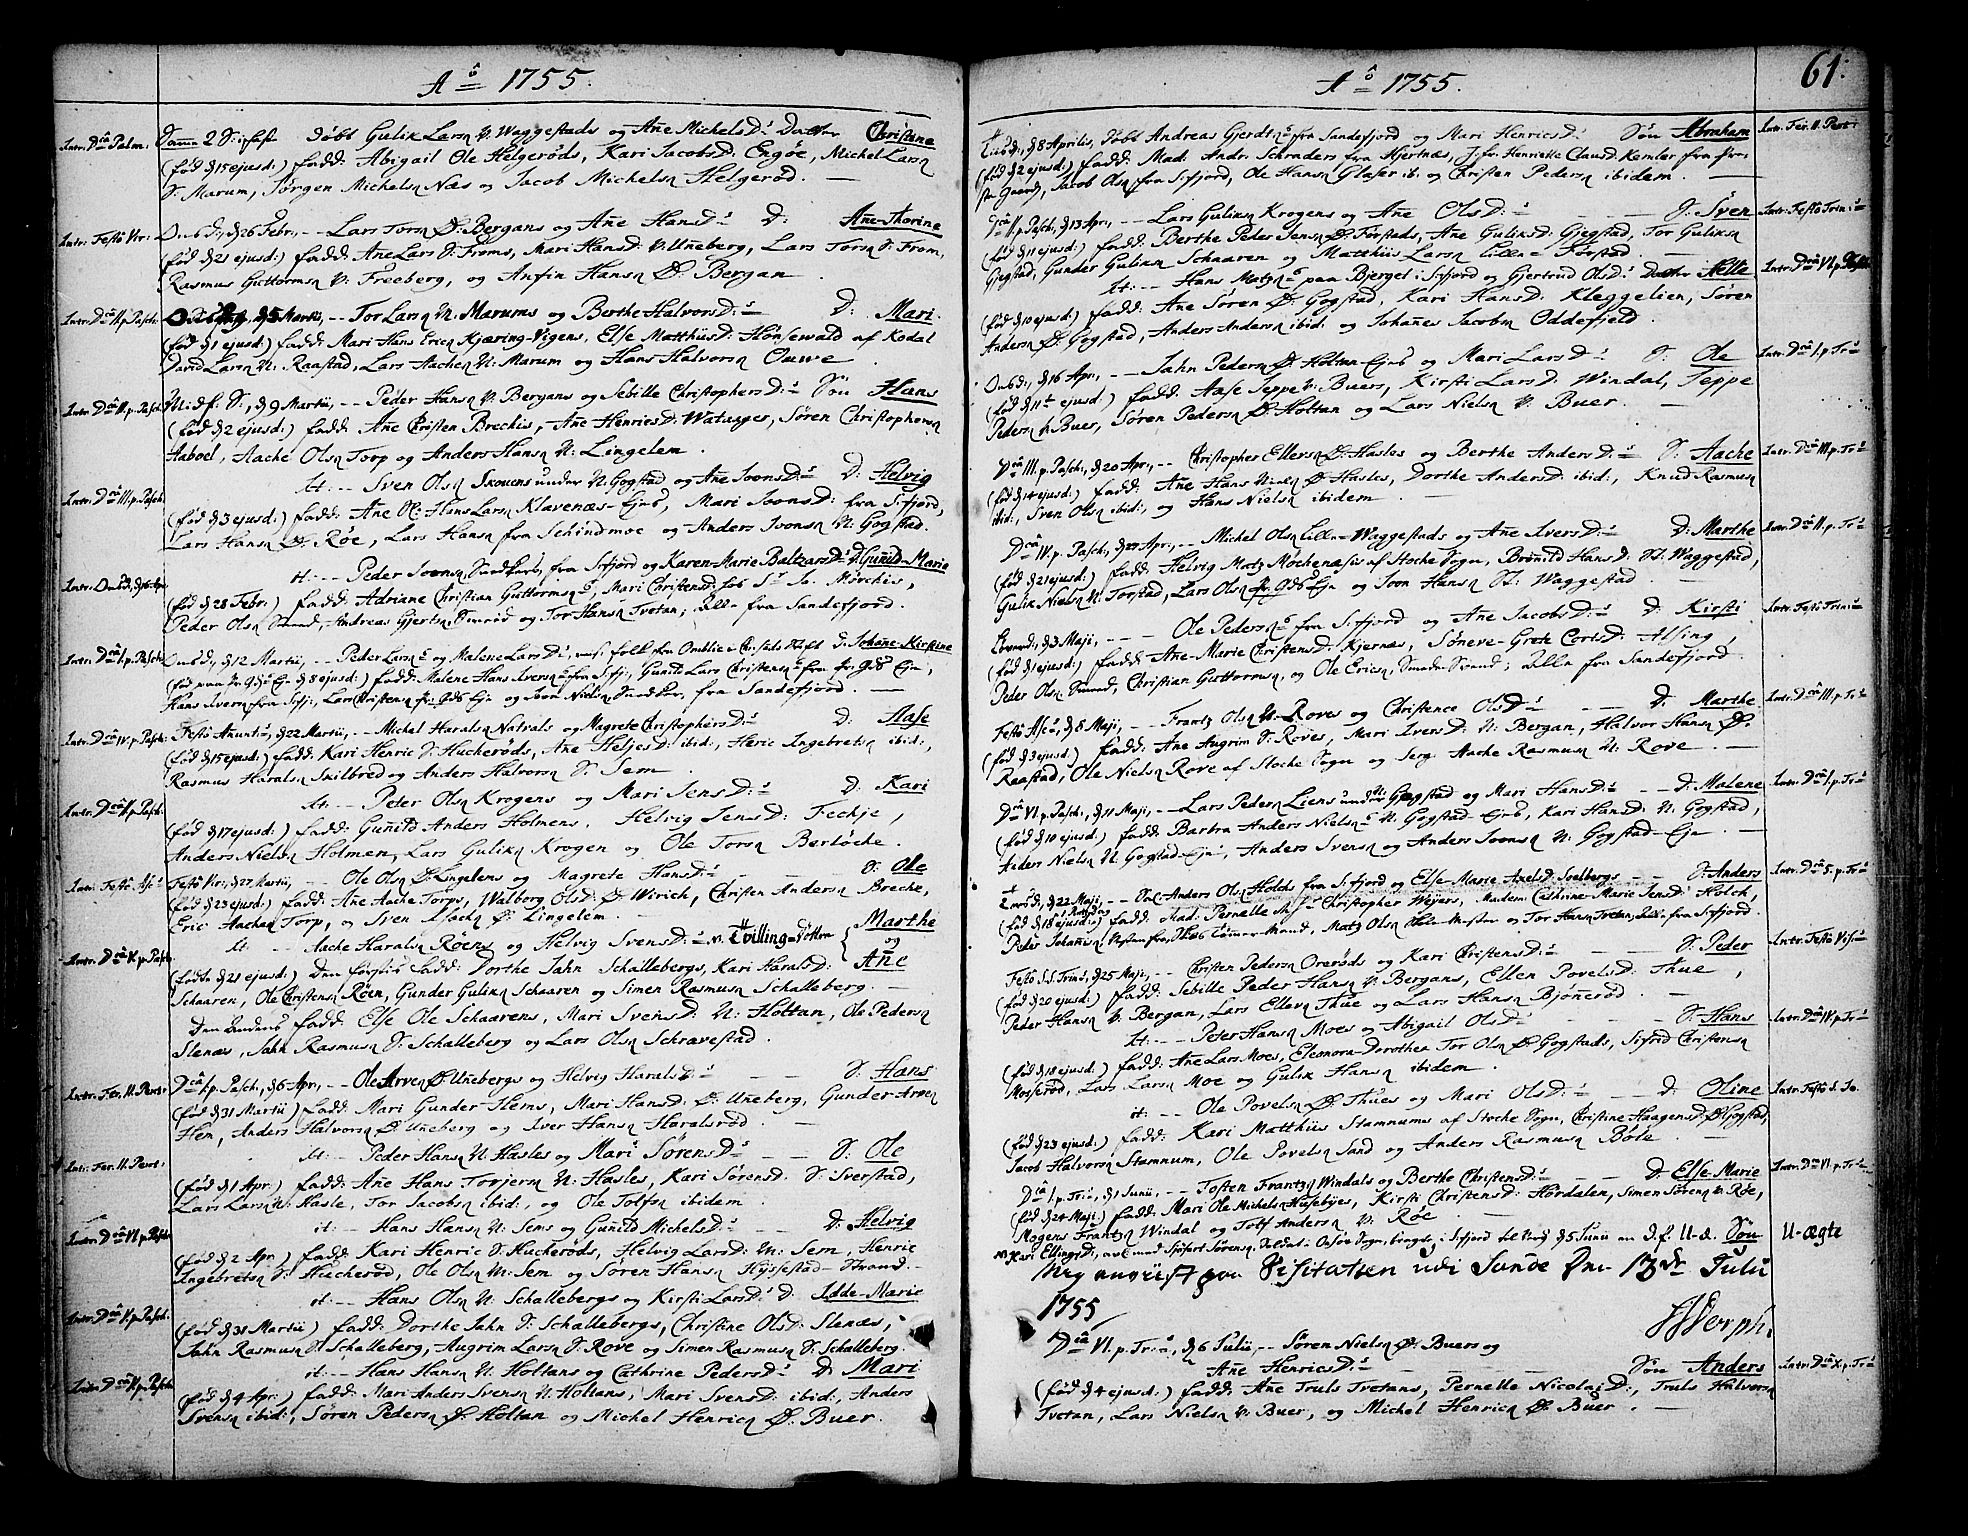 Aô 1755.
Intr. Dca Palm: 2 S: i faste døbt Gulik Larsn V. Waggestads og Añe MichelsD: Datter Christine
(fød d. 15 ejusd:) fadd: Abigail Ole Helgerøds, Kari JacobsD: Engøe, Michel Larsn
S: Marum, Jørgen Michelsn Næs og Jacob Michelsn Helgerød. —
Intr. Festô Vis: OnsD:, d. 26 Febr., -- Lars Torsn Ø: Bergans og Añe HansD: D: Añe-Thorine
(fød d. 21 ejusd:) fadd: Ane Lars S: Froms, Mari HansD: V. Uneberg, Lars Torsn S: From,
Rasmus Guttormsn V: Freeberg, og Anfin Hansn Ø: Bergan
Intr. Dca II. p. Pasch: d. 5 Martii, -- Tor Larsn N: Marums og Berthe HalvorsD: D: Mari.
(fød d. 1 ejusd:) fadd: Mari Hans Ericsn Kjæring-Vigens, Else MatthiisD: Hønsewald af Kodal
David Larsn N: Raastad, Lars Aachesn N: Marum og Hans Halvorsn Ouwe
Intr. Dca II. p. Pasch: Mid f. S:, d. 9 Martii, -- Peder Hansn V: Bergans og Sebille ChristophersD: Søn Hans
(fød d. 2 ejusd:) fadd: Añe Christen Brechis, Añe HenricsD: Watauges, Søren Christophersn
Aaboel, Aache Olsn Torp og Anders Hansn N: Lingelem.
Intr. Dca III. p. Pasch: It: -- Sven Olsn Skouens under N: Gogstad og Ane JoonsD: D: Helvig
(fød d. 3 ejusd:) fadd: Ane Ole Hans Larsn Klavenæs-Ejes, Mari JoonsD: fra S:fjord,
Lars Hansn Ø: Røe, Lars Hansn fra Schindmoe og Anders Joonsn N: Gogstad.
it: -- Peder fra S:fjord og Karen-Marie BaltzarsD: D: Gunild-Marie
(fød d. 28 Febr:) fadd: Adriane Christian Guttormsn, Mari ChristensD Mørchis,
Peder Olsn Smed, Andreas Gjertsn og Tor Hansn Tvetan; Alle fra Sandefjord.
Intr. Dca I. p. Pasch: OnsD:, d. 12 Martii, -- Peder Larsn og Malene LarsD: D: Johane-Kirstine
d. 8 ejusd:) fadd: Malene Hans Iversn fra S:fj:, Gunild Lars Christensn
Hans Iversn fra S:fj:, Lars Christensn og Joon Nielsn fra Sandefjord. —
Intr. Dca IV. p. Pasch: Festô Añunt:, d. 22 Martii, -- Michel Haralsn Natvals og Magrete ChristophersD: D: Aase
(fød d. 15 ejusd:) fadd: Kari Henric S: Hucherøds, Ane HeljesD: ibid:, Heric Ingebretsn ibid:,
Rasmus Haralsn Skilbred og Anders Halvorsn S: Sem
It: -- Peter Olsn Krogens og Mari JensD: D: Kari
(fød d. 17 ejusd:) fadd: Gunild Anders Holmens, Helvig JensD: Feckje,
Anders Nielsn Holmen, Lars Guliksn Krogen og Ole Torsn Bertøche.
Intr. Festô Asc: Festô Vis:, d. 27 Martii, -- Ole Olsn Ø: Lingelems og Magrete HansD: S: Ole
(fød d. 23 ejusd:) fadd: Ane Aache Torps, Walborg OlsD: Ø: Wirich, Christen Andersn Breche,
Eric Aachesn Torp, og Sven Ø: Lingelem.
It: -- Aache Haralsn Roens og Helvig SvensD: Tvilling-Døttre Marthe og Añe
(fødte d. 21 ejusd:) Den førstes fadd: Dorthe Jahn Schallebergs, Kari HaralsD:
Schaaren, Ole Christensn Røen, Gunder Guliksn Schaaren og Simen Rasmusn Schalleberg. —
Den Andens fadd: Else Ole Schaarens, Mari SvensD: N: Holtan, Ole Pedersn
Slenæs, Jahn Rasmusn S: Schalleberg og Lars Olsn Schravestad.
Intr. Fer. II. Pent: Dca I. p. Pasch:, d. 6 Apr:, -- Ole Arvesn Ø: Unebergs og Helvig HaralsD: S: Hans
(fød d. 31 Martii) fadd: Mari Gunder Hems, Mari HansD: Ø: Uneberg, Gunder Arvesn
Hem, Anders Halvorsn Ø: Uneberg og Iver Hansn Haralsrød.
Intr. Fer. II. Pent: It: -- Peder Hansn N: Hasles og Mari SørensD: S: Ole
(fød d. 1 Apr:) fadd: Añe Hans Torjersn N: Hasles, Kari SørensD: S: Sverstad,
Lars Larsn N: Hasle, Tor Jacobsn ibid:, og Ole Tolfsn ibidem.
Intr. Dca VI. p. Pasch: it: -- Hans Hansn N: Sems og Gunild MichelsD: D: Helvig
(fød d. 2 Apr:) fadd: Kari Henric S: Hucherøds, Helvig LarsD: M: Sem, Henric
Ingebretsn S: Hucherød, Ole Olsn M: Sem og Søren Hansn Hyssestad-Strand. —
Intr. Dca V. p. Pasch: it: -- Hans Olsn N: Schallebergs og Kirsti LarsD: D: Idde-Marie
(fød d. 31 Martii) fadd: Dorthe Jahn S: Schallebergs, Christine OlsD: Slenæs,
Jahn Rasmusn S: Schalleberg, Augrim Larsn S: Rove og Simen Rasmusn S: Schalleberg.
Intr. Dca V. p. Pasch: it: -- Hans Hansn N: Holtans og Cathrine PedersD: D: Mari
(fød d. 4 Apr:) fadd: Mari Anders Svensn N: Holtans, Mari SvensD: ibid:, Anders
Svensn ibid:, Søren Pedersn Ø: Holtan og Michel Henricsn Ø: Buer.
Aô 1755.
61:
TirsD:, d. 8 Aprilis, døbt Andreas Gjerdtsn fra Sandefjord og Mari HenricsD: Søn Abraham Intr. Fer. II. Pent:
(fød d. 2 ejusd:) fadd: Mad. Andr. Schraders fra Hjertnæs, Jfr. Henriette ClausD. Kemler fra Præ-
ste Gaard, Jacob Olsn fra S:fjord, Ole Hansn Glaser ib. og Christen Pedersn ibidem.
Dca II. p. Pasch:, d. 13 Apr:, -- Lars Guliksn Krogens og Ane OlsD: S: Sven Intr. Festô Trin:
(fød d. 11 ejusd:) fadd: Berthe Peder Jensn Ø: Førstads, Ane GuliksD: Gjegstad, Tor Guliksn
Gjegstad, Gunder Guliksn Schaaren og Matthiis Larsn Lille-Førstad.
It: -- Hans Matzn paa Bjerget i S:fjord og Gjertrud OlsD: Datter Nette Intr. Dca VI. p. Pasch:
(fød d. 10 ejusd:) fadd: Ane Søren Ø: Gogstad, Kari HansD: Kleggelien, Søren
Andersn Ø: Gogstad, Anders Andersn ibid: og Johañes Jacobsn Oddefjeld.
OnsD:, d. 16 Apr:, -- Jahn Pedersn Ø: Holtan-Ejes og Mari LarsD: S: Ole Intr. Dca I. p. Tr:
(fød d. 11te ejusd:) fadd: Aase Jeppe V: Buers, Kirsti LarsD: Windal, Jeppe
Pedersn V: Buer, Søren Pedersn Ø: Holtan og Lars Nielsn V: Buer. —
Dca III. p. Pasch:, d. 20 Apr:, -- Christopher Ellefsn Ø: Hasles og Berthe AndersD: S: Aache Intr. Dca III. p. Tr:
(fød d. 14 ejusd:) fadd: Añe Hans Nielsn Ø: Hasles, Dorthe AndersD: ibid:, Knud Rasmusn
ibid:, Sven Olsn ibid:, og Hans Nielsn ibidem.
Dca IV. p. Pasch:, d. 27 Apr:, -- Michel Olsn Lille-Waggestads og Ane IversD: D: Marthe Intr. Dca II. p. Tr:
(fød d. 21 ejusd:) fadd: Helvig Matz Mochenæsis af Stoche Sogn, Brønild HansD: St: Waggestad,
Gulik Nielsn N: Torstad, Lars Olsn og Joon Hansn St: Waggestad. —
d. 3 Maji, -- Ole Pedersn fra S:fjord og Ane JacobsD: D: Kirsti Intr. Festô Trin:
(fød d. 1 ejusd:) fadd: Ane-Marie ChristensD: Kjernæs, Søneve-Grete CortsD: Alsing,
Peder Olsn Smed, Christian Guttormsn, og Ole Ericsn; Alle fra Sandefjord
Festô Asc:, d. 8 Maji, -- Frantz Olsn N: Roves og Christence OlsD: D: Marthe Intr. Dca III. p. Tr:
(fød d. 3 ejusd:) fadd: Ane Augrim S: Roves, Mari IversD: N: Bergan, Halvor Hansn Ø:
Raastad, Ole Nielsn Rove af Stoche Sogn og Serg. Aache Rasmusn N: Rove. —
Dca VI. p. Pasch:, d. 11 Maji, -- Lars Pedersn Liens under N: Gogstad og Mari HansD: D: Malene Intr. Dca I. p. Tr:
(fød d. 10 ejusd:) fadd: Barbra Anders Nielsn N: Gogstad-Ejes, Kari HansD: N: Gogstad,
Anders Nielsn N: Gogstad-Eje, Anders Svensn og Anders Joonsn N: Gogstad-Eje. —
d. 22 Maji, -- Anders Olsn Holchs fra S:fjord og Else-Marie AxelsD: Soelbergs S: Anders Intr. Dca 5. p. Tr:
(fød d. 18 ejusd:) fadd: Mad. Pernelle Christopher Wejers, Madem. Cathrine-Marie JensD: Holch,
Peder Johañisn Matz Olsn og Tor Hansn Tvetan, Alle fra S:fjord.
Festô S.S. Trin:, d. 25 Maji, -- Christen Pedersn Orerøds og Kari ChristensD: S: Peder Intr. Festô Vis:
(fød d. 20 ejusd:) fadd: Sebille Peder Hansn V: Bergans, Ellen PovelsD: Thue,
Peder Hansn V: Bergan, Lars Ellefsn Thue og Lars Hansn Bjønerød. —
It: -- Peter Hansn Moes og Abigail OlsD: S: Hans Intr. Dca IV. p. Tr:
(fød d. 18 ejusd:) fadd: Añe Lars Moes, Eleonora-Dorothea Tor Olsn Ø: Gogstads, Sifred Christensn
Moserød, Lars Larsn Moe og Gulik Hansn ibidem.
it: -- Ole Povelsn Ø: Thues og Mari OlsD: D: Oline Intr. Festô S. Jo.
(fød d. 23 ejusd:) fadd: Kari Matthiis Stamnums af Stoche Sogn, Christine HaagensD: Ø: Gogstad,
Jacob Halvorsn Stamnum, Ole Povelsn Sand og Anders Rasmusn Bøle.
Dca I. p. Tri:, d. 1 Junii, -- Tosten Frantzn Windals og Berthe ChristensD: D: Else-Marie Intr. Dca VI. p. Tr:
(fød d. 24 Maji) fadd: Mari Ole Michelsn Hasebyes, Kirsti ChristensD: Hørdalen, Simen Sørensn V: Røe,
Mogens Frantzn Windal og Tolf Andersn V: Røe
Kari EllingsD:, Sogn, i S:fjord d. 5 Junii en Søn U-ægte
paa Visitatzen udi Sande Den 13de Julii
1755
Dca VI. p. Tr:, d. 6 Julii, -- Søren Nielsn Ø: Buers og
Añe HenricsD: Søn Anders Intr. Dca X. p. Tr:
(fød d. 4 ejusd:) fadd: Ane Truls Tvetans, Pernelle NicolaiD:, Truls Halvorsn
Tvetan, Lars Nielsn V: Buer, og Michel Henricsn Ø: Buer. —